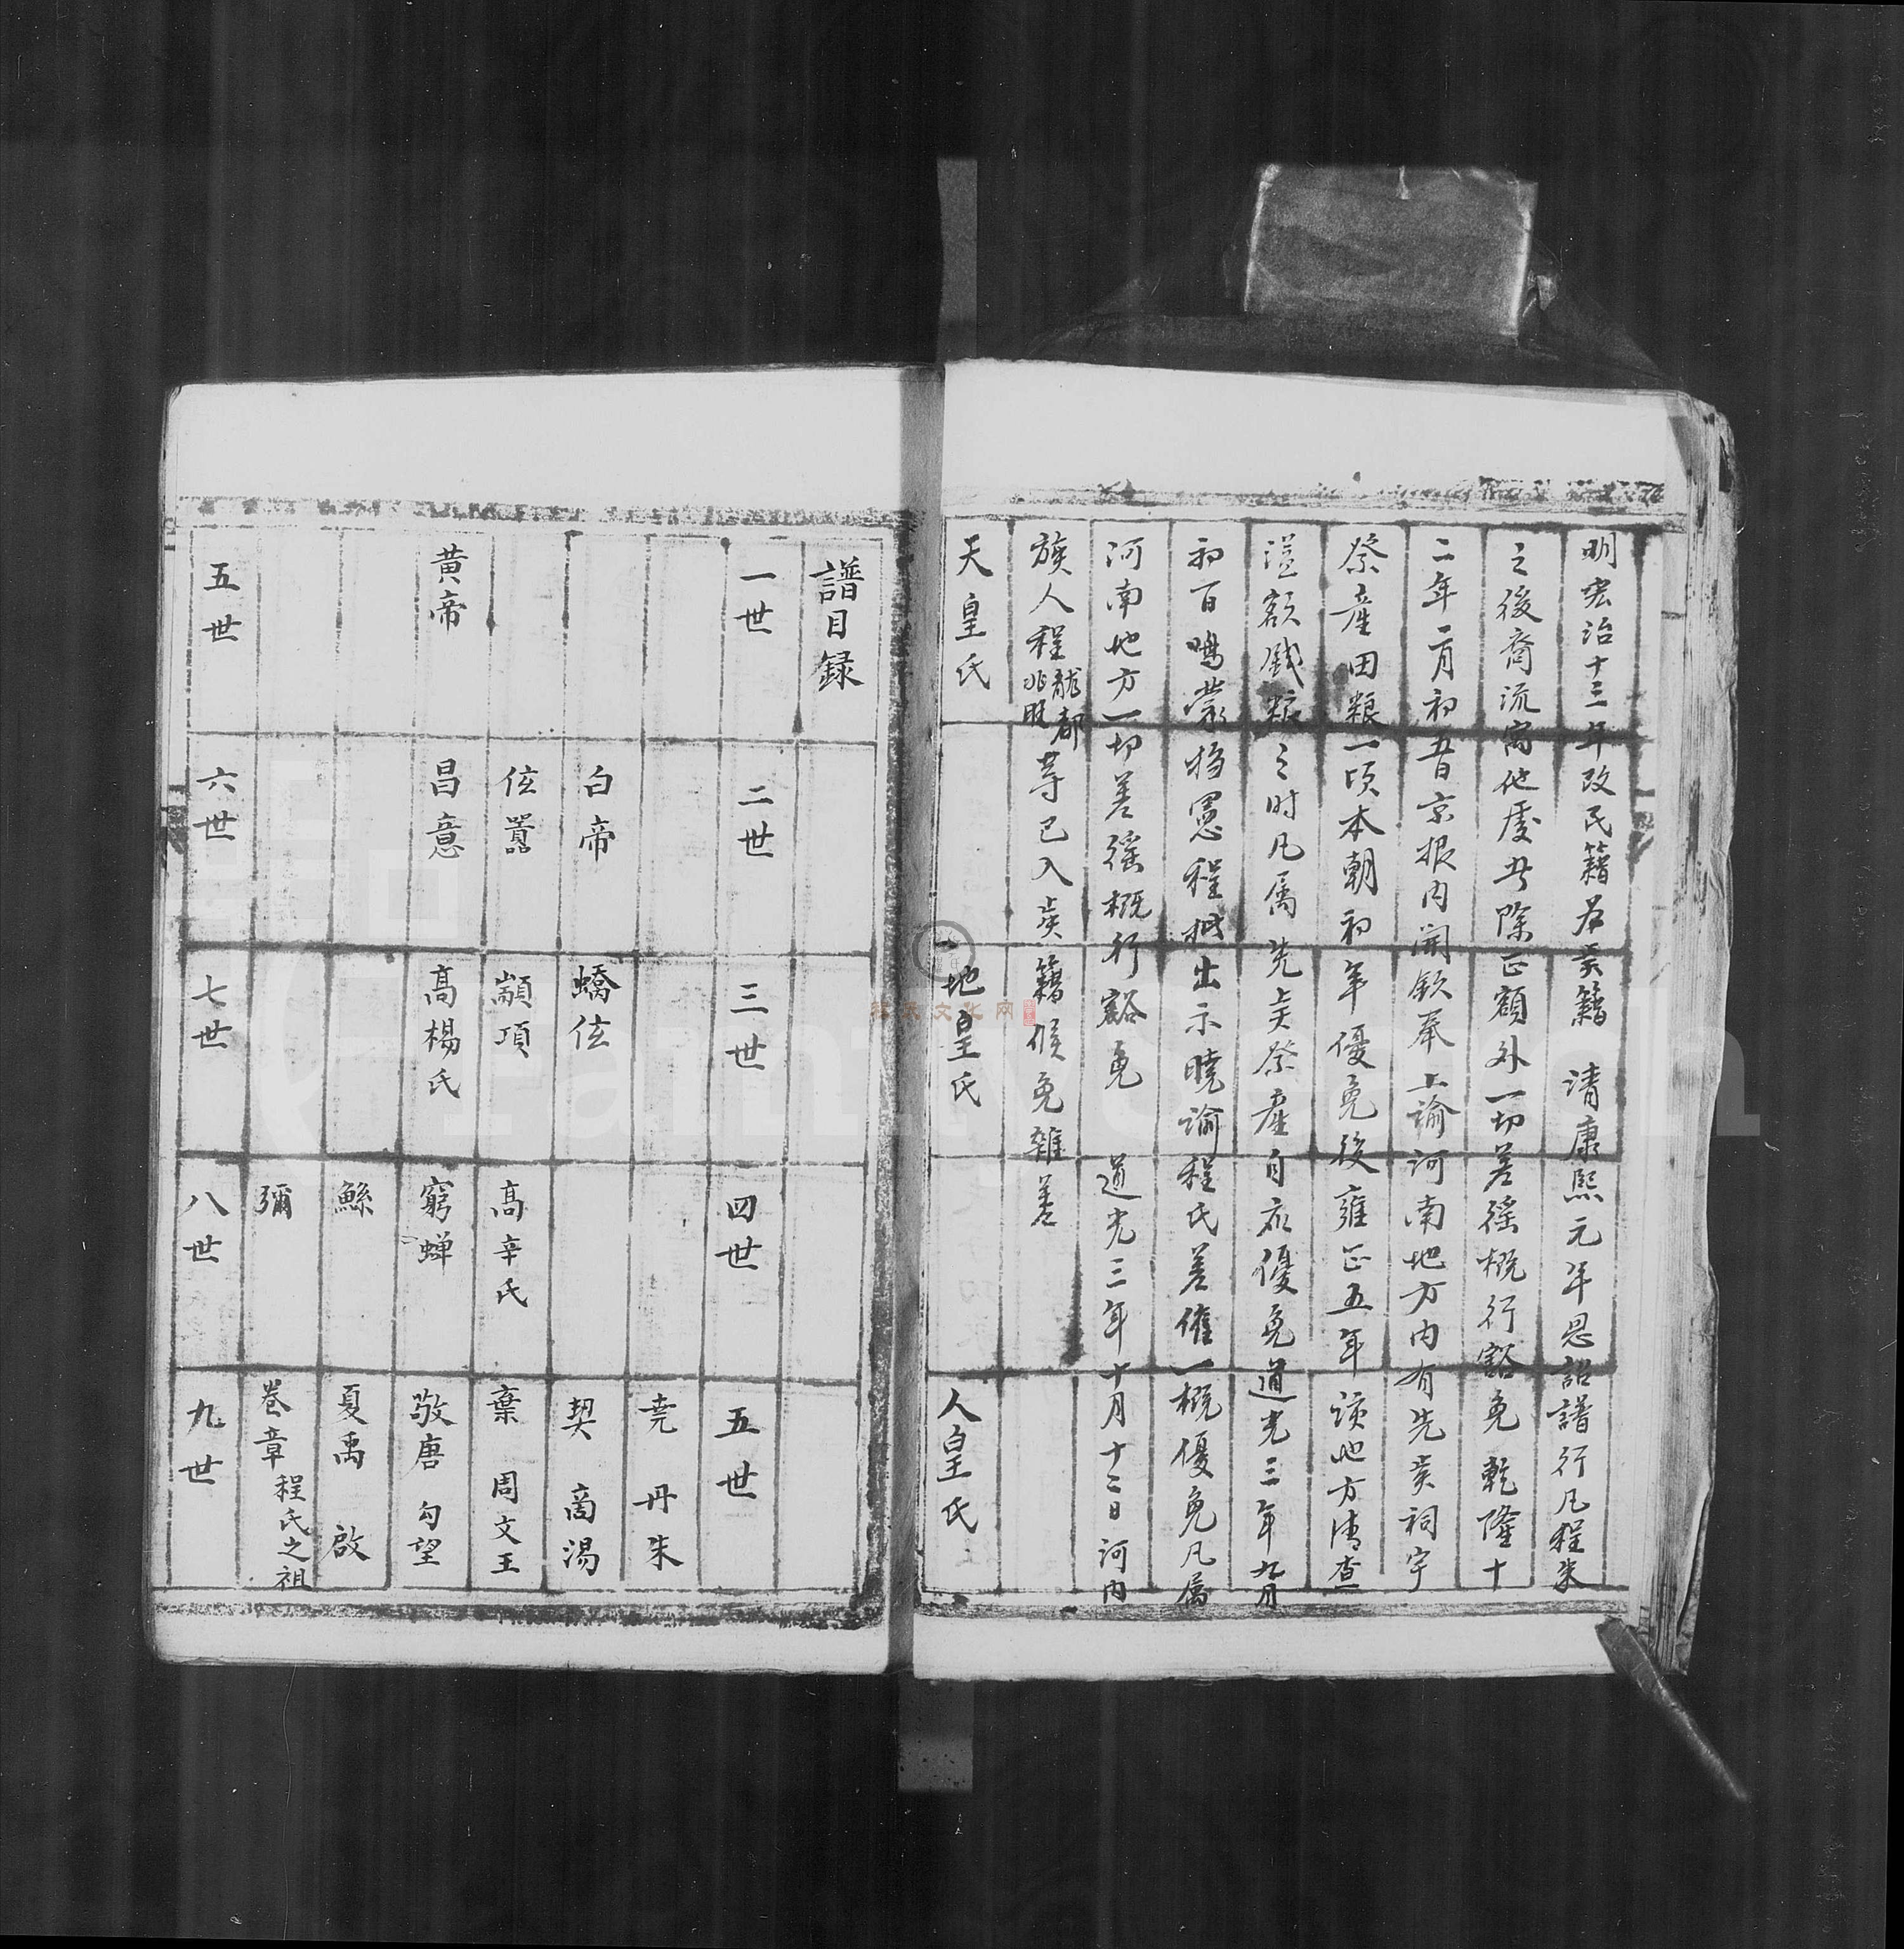 明宏治十三年改民籍為美籍 清康熙元年恩詔譜行凡程朱
之後裔流寓他處者除正額外一切差徭概行豁免乾隆十
二年二月初五日京报内開欽奉上諭河南地方内有先英祠宇
祭產田粮一頃本朝初年優免後雍正五年該地方清查
溢額錢粮之时凡属先英祭產自应優免道光三年九月
初百鳴蒙將憲程批出示曉谕程氏差催一概優免凡属
河南地方一切差徭概行豁免 道光三年十月十二日河内
族人程龍都兆旺等已入英籍候免雜差
天皇氏 地皇氏 人皇氏
譜目録
一世 二世 三世 四世 五世
堯 丹朱
白帝 蟜伭 契 商湯
伭囂 顓頊 高辛氏 棄 周文王
黄帝 昌意 高楊氏 窮蝉 敬唐 勾望
鯀 夏禹 啟
彌 卷章 程氏之祖
五世 六世 七世 八世 九世